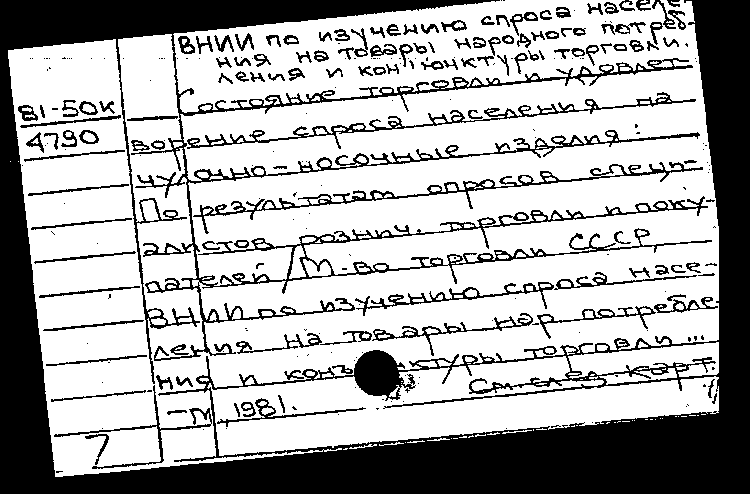 ВНИИ по изучению спроса населе-
ния на товары народного потреб-
ления и конъюнктуры торговли.
81-50к
4790
Состояние торговли и удовлет-
ворение спроса населения на
чулочно-носочные изделия:
По результатам опросов специ-
алистов рознич. торговли и поку-
пателей / М-во торговли СССР,
ВНИИ по изучению спроса насе-
ления на товары нар потребле-
ния и конъюнктуры торговли ...
-М, 1981.
См. след. карт.
7